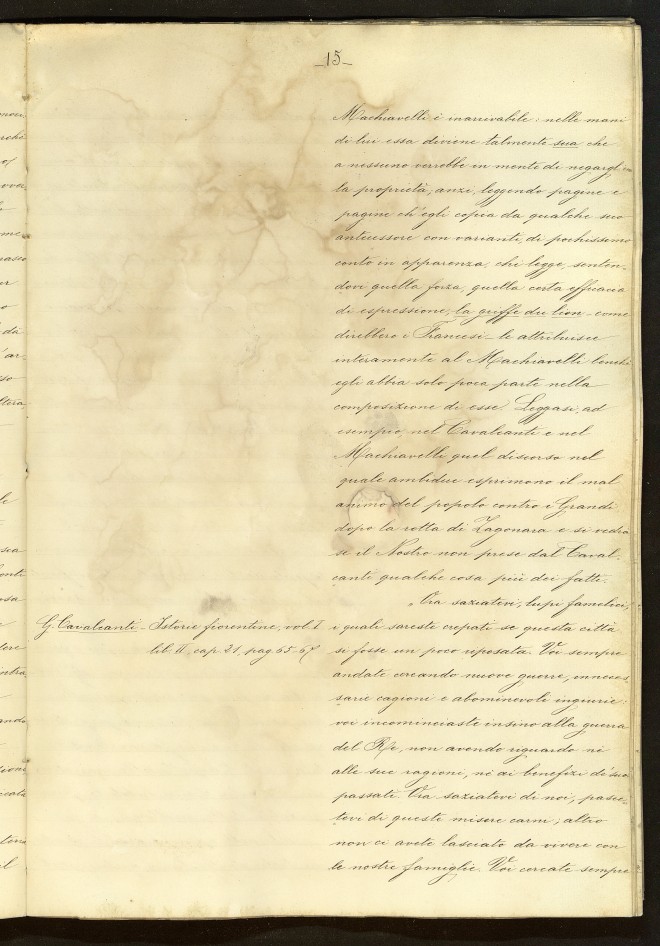 _15_
Machiavelli è inarrivabile: nelle mani
di lui essa diviene talmente sua che
a nessuno verrebbe in mente di
la proprietà; anzi, leggendo pagine e
pagine ch'egli copia da qualche suo
antecessore con varianti di pochissimo
conto in apparenza, chi legge, senten-
dovi quella forza, quella certa efficacia
di espressione, la griffe du lion - come
direbbero i Francesi - le attribuisce
interamente al Machiavelli benchè
egli abbia solo poca parte nella
composizione di esse. Leggasi, ad
esempio, nel Cavalcanti e nel
Machiavelli quel discorso nel
quale ambidue esprimono il mal
animo del popolo contro i Grandi
dopo la rotta di Zagonara e si vedrà
se il Nostro non prese dal Caval-
canti qualche cosa più dei fatti.
"Ora saziatevi, lupi famelici,
G. Cavalcanti - Istorie fiorentine, vol. I
lib. II, cap. 21, pag. 65-67
i quali sareste crepati se questa città
si fosse un poco riposata. Voi sempre
andate cercando nuove guerre, inneces-
sarie cagioni e abominevoli ingiurie:
voi incominciaste insino alla guerra
del Re, non avendo riguardo nè
alle sue ragioni, nè ai benefizi de' suoi
passati. Ora saziatevi di noi, pasce-
tevi di queste misere carni; altro
non ci avete lasciato da vivere con
le nostre famiglie. Voi cercate sempre